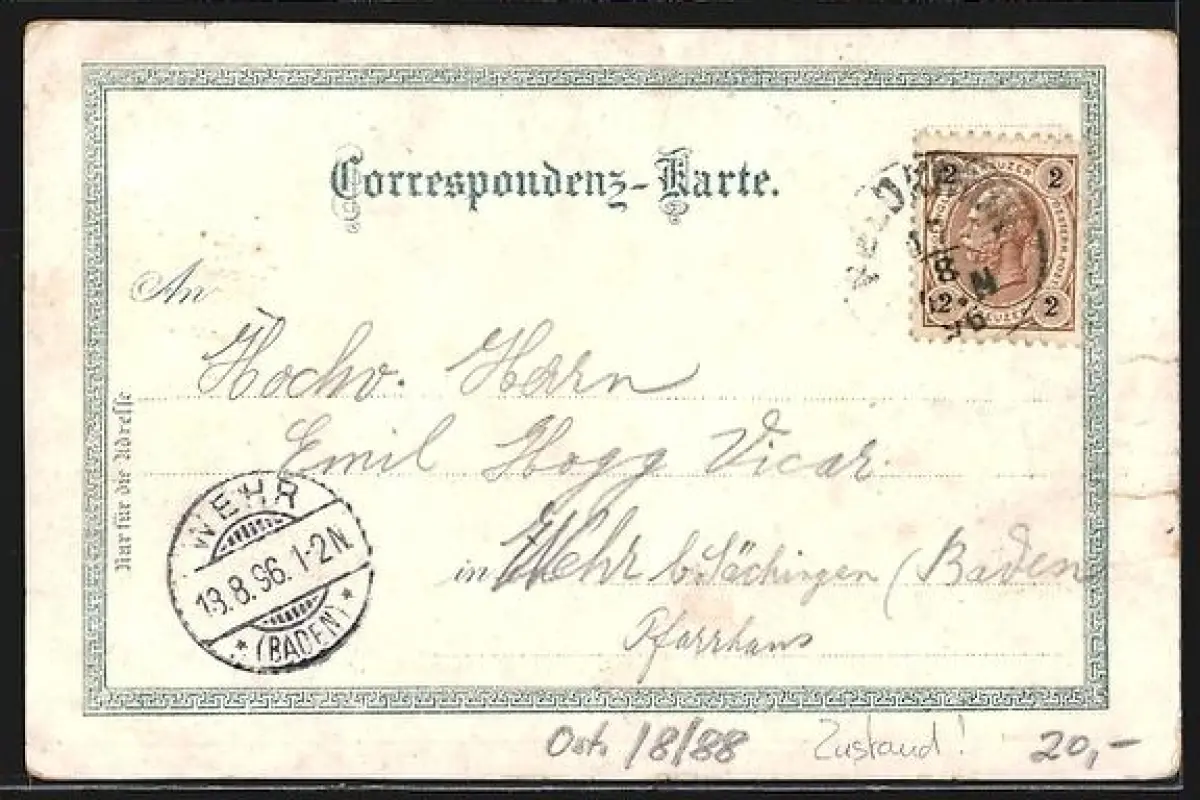 Correspondenz-Karte.
2 KREUZER 2
2 KREUZER 2
8
96
An
Hochw. Herrn
Emil Hogg Vicar.
in Wehr b. Säckingen (Baden
Pfarrhaus
Nur für die Adresse
WEHR
13.8.96. 1-2N.
* (BADEN) *
Östr. /8/88 Zustand! 20,-